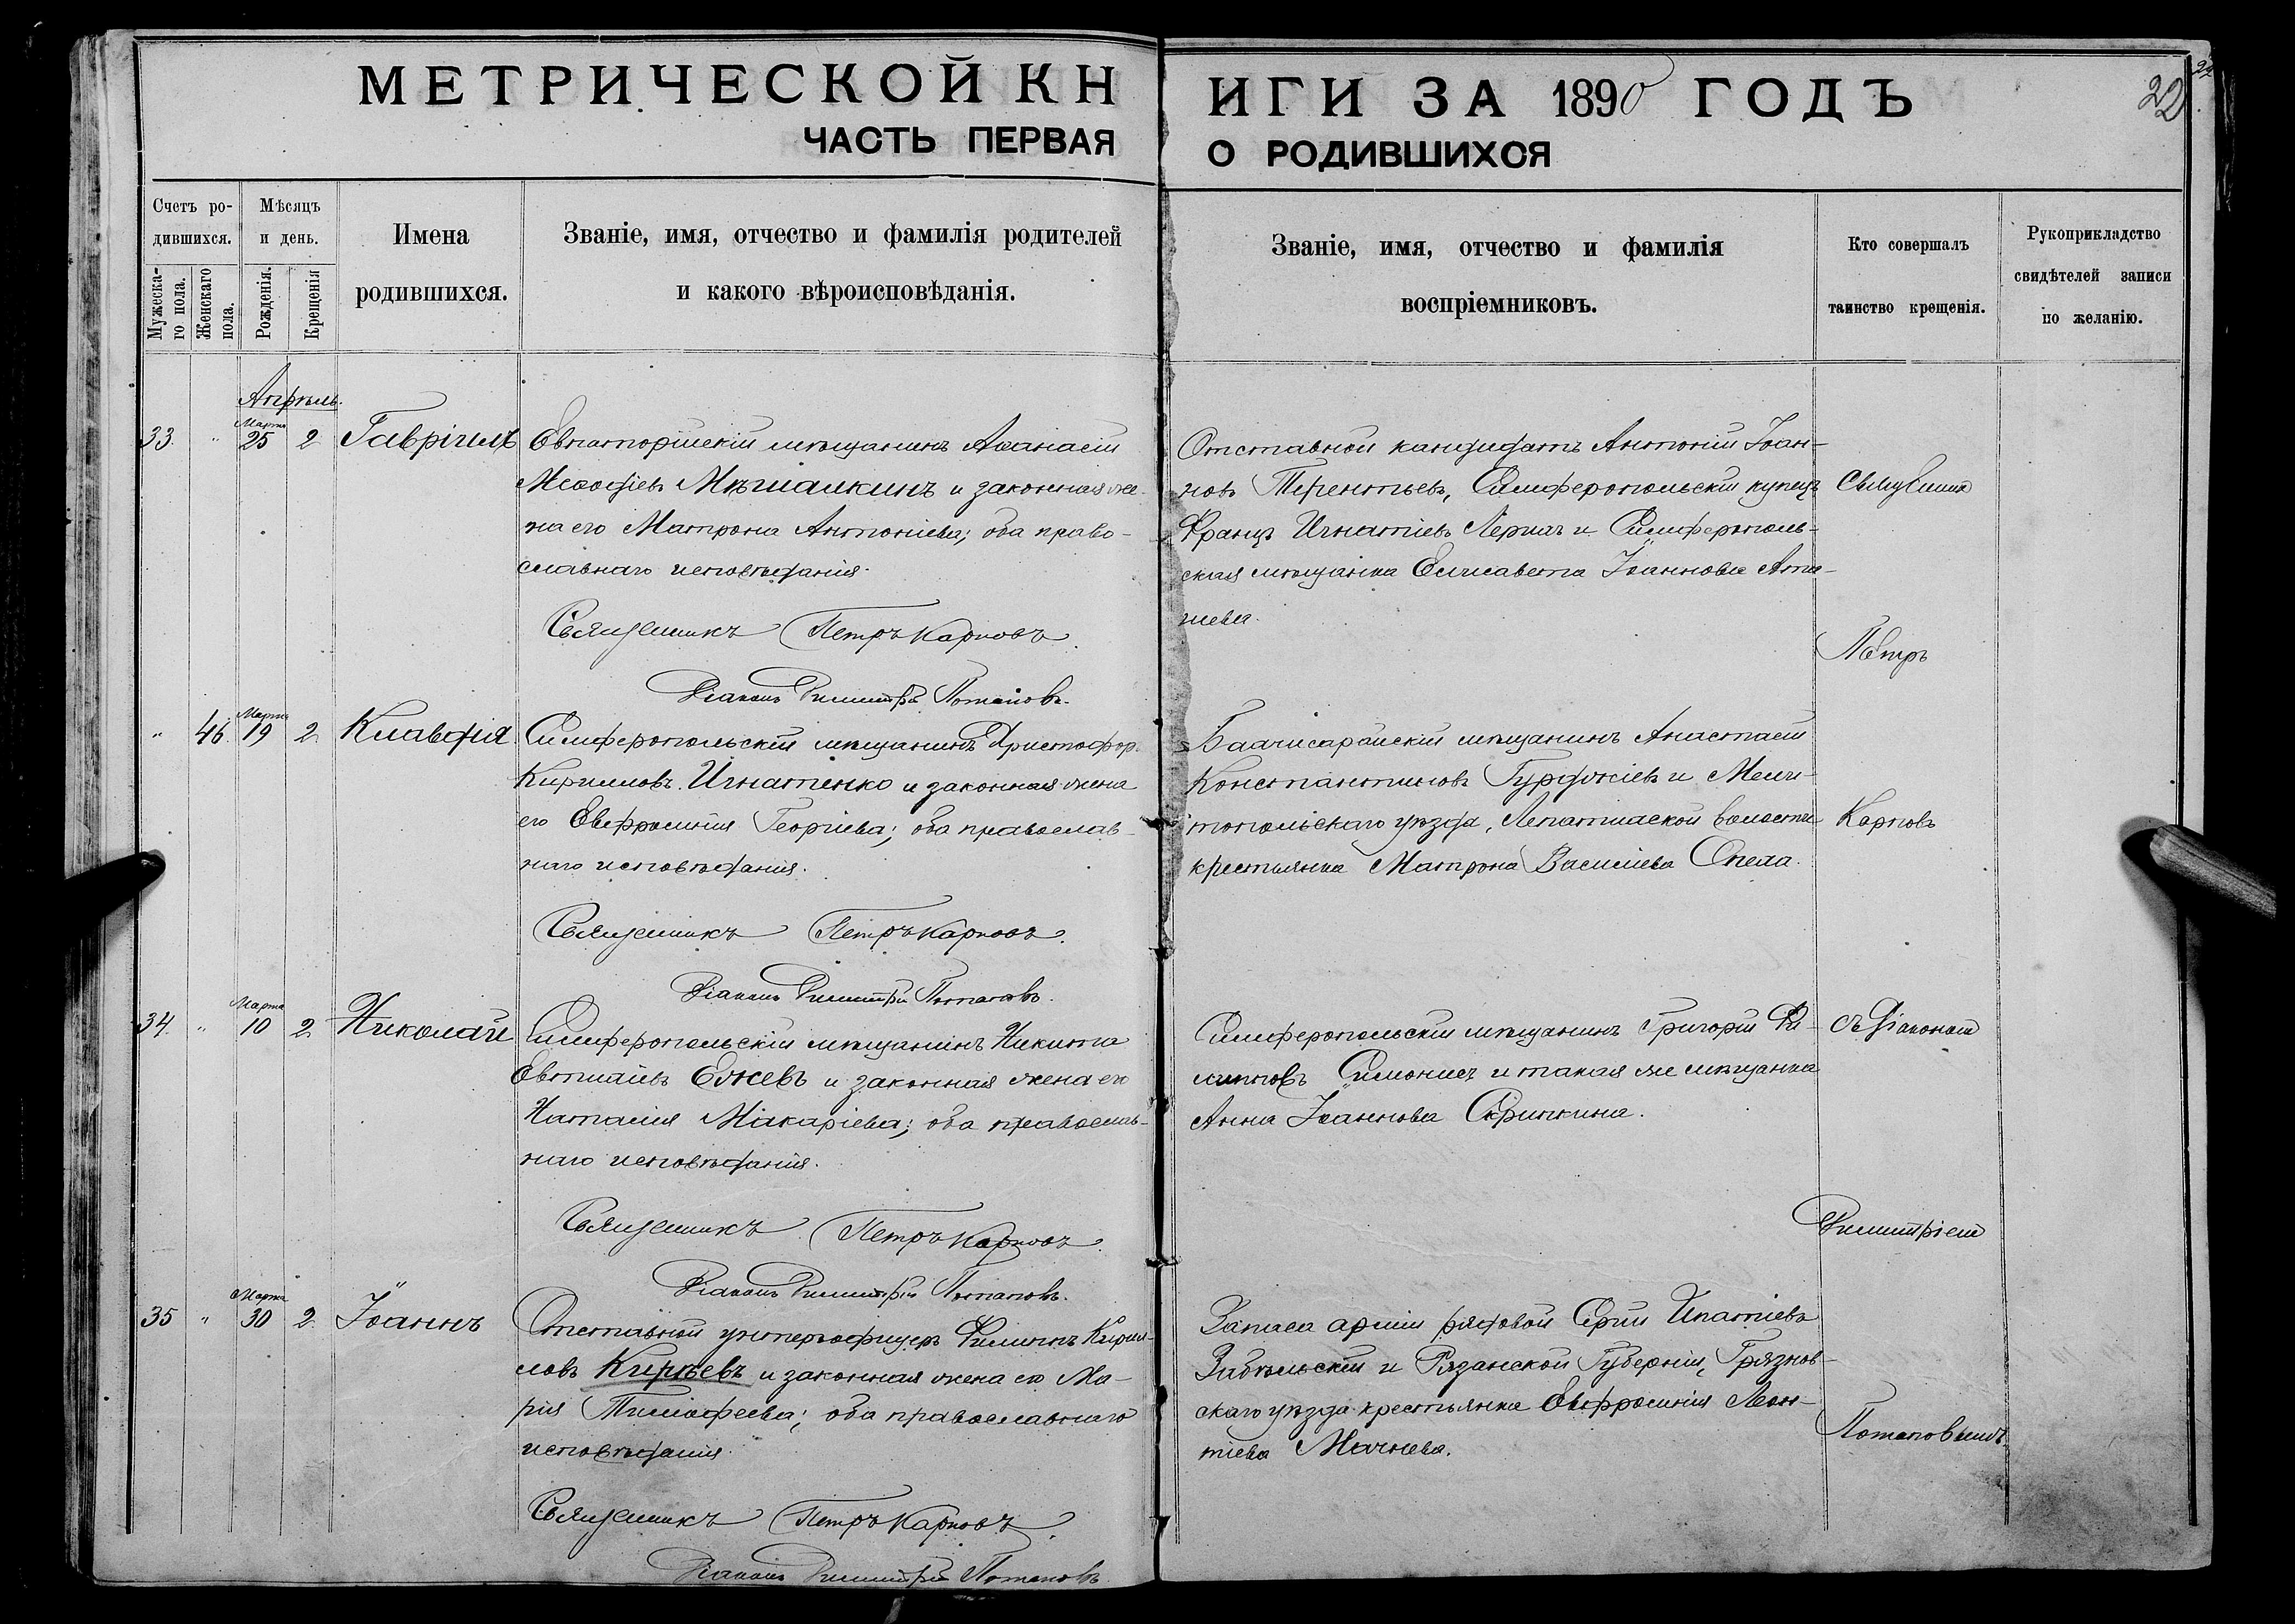 МЕТРИЧЕСКОЙ КНИГИ ЗА 1890 ГОДЪ
22
ЧАСТЬ ПЕРВАЯ О РОДИВШИХСЯ
Счетъ ро-
дившихся.
Мужеска-
го пола.
Женскаго
пола.
Мѣсяцъ
и день.
Рожденія.
Крещенія
Имена
родившихся.
Званіе, имя, отчество и фамилія родителей
и какого вѣроисповѣданія.
Званіе, имя, отчество и фамилія
воспріемниковъ.
Кто совершалъ
таинство крещенія.
Рукоприкладство
свидѣтелей записи
по желанію.
Апрѣль.
33. " Марта 25 2 Гавріилъ
Евпаторійскій мѣщанинъ Аѳанасій
Меѳодіевъ Мѣшалкинъ и законная же-
на его Матрона Антоніева; оба право-
славнаго исповѣданія.
Священникъ Петръ Карповъ.
Діаконъ Димитрій Потаповъ.
Отставной кандидатъ Антоній Іоан-
новъ Терентьевъ, Симферопольскій купецъ
Францъ Игнатіевъ Лерихъ и Симферополь-
ская мѣщанка Елисавета Іоаннова
" 46. Марта 19 2 Клавдія
Симферопольскій мѣщанинъ Христофор.
Кирилловъ Игнатенко и законная жена
его Евфросинія Георгіева; оба православ-
наго исповѣданія.
Священникъ Петръ Карповъ.
Діаконъ Димитрій Потаповъ.
мѣщанинъ Анастасій
Константиновъ и Мели-
топольскаго уѣзда, волости
крестьянка Матрона Василіева
34. " Марта 10 2 Николай
Симферопольскій мѣщанинъ Никита
Ежевъ и законная жена его
Наталія Макаріева; оба православ-
наго исповѣданія.
Священникъ Петръ Карповъ.
Діаконъ Димитрій Потаповъ.
Симферопольскій мѣщанинъ Григорій Фи-
липповъ и такая же мѣщанка
Анна Іоаннова Скрипкина.
35 " Марта 30 2. Іоаннъ
Отставной унтеръ-офицеръ Филиппъ Кирил-
ловъ Кирѣевъ и законная жена его Ма-
рія Тимофеева; оба православнаго
исповѣданія.
Священникъ Петръ Карповъ.
Діаконъ Димитрій Потаповъ
Запаса арміи рядовой Ипатіевъ
и Рязанской Губерніи,
скаго уѣзда крестьянка Евфросинія Леон-
тіева Мачнева.
Священникъ
Петръ
Карповъ
съ Діакономъ
Димитріемъ
Потаповымъ.